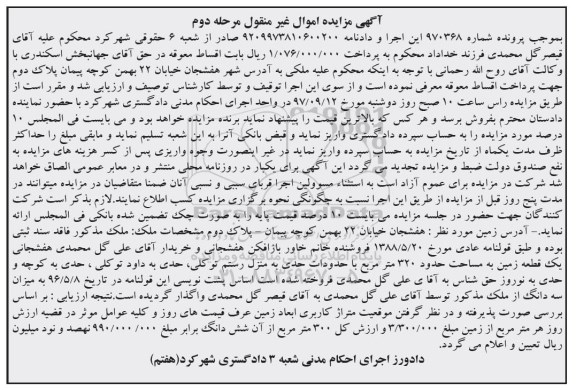 آگهی مزایده اموال غیر منقول مرحله دوم
بموجب پرونده شماره ۹۷۰۳۶۸ این اجرا و دادنامه ۹۲۰۹۹۷۳۸۱۰۶۰۰۲۰۰ صادر از شعبه ۶ حقوقی شهرکرد محکوم علیه آقای
قیصر گل محمدی فرزند خداداد محکوم به پرداخت ۱/۰۷۶/۰۰۰/۰۰۰ ریال بابت اقساط معوقه در حق آقای جهانبخش اسکندری با
وکالت آقای روح الله رحمانی با توجه به اینکه محکوم علیه ملکی به آدرس شهر هفشجان خیابان ۲۲ بهمن کوچه پیمان پلاک دوم
جهت پرداخت اقساط معوقه معرفی نموده است و از سوی این اجرا توقیف و توسط کارشناس توصیف و ارزیابی شد و مقرر است از
طریق مزایده راس ساعت ۱۰ صبح روز دوشنبه ۹۷/۰۹/۱۲ در واحد اجرای احکام مدنی دادگستری شهرکرد با حضور نماینده
دادستان محترم بفروش برسد و هر کس که بالاترین قیمت را پیشنهاد نماید برنده مزایده خواهد بود و می بایست فی المجلس ۱۰
درصد مورد مزایده را به حساب سپرده دادگستری واریز نماید و قبض بانکی آنرا به این شعبه تسلیم نماید و مابقی مبلغ را حداکثر
ظرف مدت یکماه از تاریخ مزایده به حساب سپرده واریز نماید در غیر اینصورت وجوه واریزی پس از کسر هزینه های مزایده به
نفع صندوق دولت ضبط و مزایده تجدید می گردد این آگهی برای یکبار در روزنامه محلی منتشر و در معابر عمومی الصاق خواهد
شد شرکت در مزایده برای عموم آزاد است به استثناء مسوولین اجرا قربای سببی و نسبی آنان ضمنا متقاضیان در مزایده میتوانند در
مدت پنج روز قبل از مزایده از طریق این اجرا نسبت به چگونگی نحوه برگزاری مزایده کسب اطلاع نمایند.لازم بذکر است شرکت
کنندگان جهت حضور در جلسه مزایده می بایست ۱۰ درصد قیمت کارشناسی را بصورت چک تضمین شده بانکی فی المجلس ارائه
نماید.- آدرس زمین مورد نظر : هفشجان خیابان ۲۲ بهمن کوچه پیمان - پلاک دوم مشخصات ملک: ملک مذکور فاقد سند ثبتی
بوده و طبق قولنامه عادی مورخ ۱۳۸۸/۵/۲۰ فروشنده خانم خاور بازافکن هفشجانی و خریدار آقای علی گل محمدی هفشجانی
یک قطعه زمین به مساحت حدود ۳۲۰ متر مربع با حدودات حدی به منزل رستم توکلی، حدی به داود توکلی ، حدی به کوچه و
حدی به نوروز حق شناس به آقای علی گل محمدی فروخته شده است براساس پشت نویسی این قولنامه در تاریخ ۹۶/۵/۸ به میزان
سه دانگ از ملک مذکور توسط آقای علی گل محمدی به آقای قیصر گل محمدی واگذار گردیده است.نتیجه ارزیابی : بر اساس
بررسی صورت پذیرفته و در نظر گرفتن موقعیت متراژ کاربری ابعاد زمین عرف قیمت های روز و کلیه عوامل موثر در قضیه ارزش
روز هر متر مربع از زمین مبلغ ۳/۳۰۰/۰۰۰ و ارزش کل ۳۰۰ متر مربع از آن شش دانگ برابر مبلغ ۹۹۰/۰۰۰/۰۰۰ نهصد و نود میلیون
ریال تعیین و اعلام می گردد.
دادورز اجرای احکام مدنی شعبه ۳ دادگستری شهرکرد(هفتم)